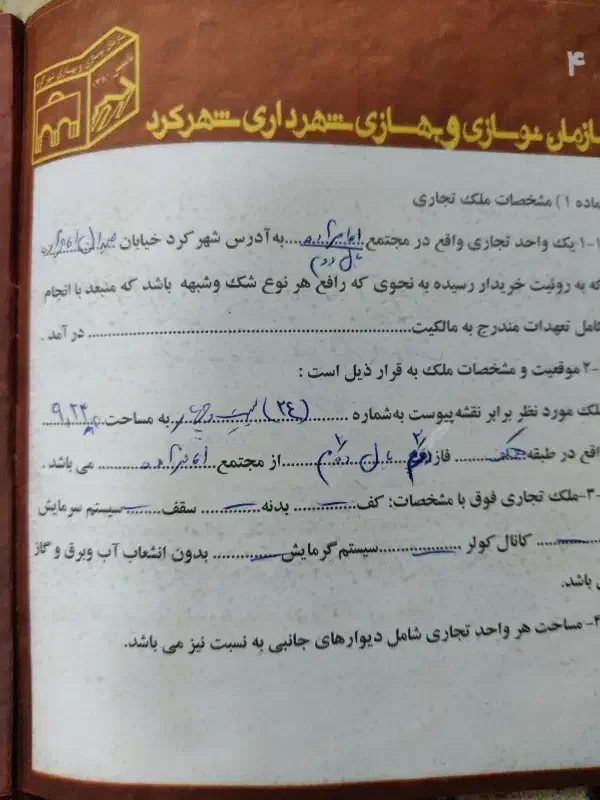 ۴
سازمان نوسازی و بهسازی شهرکرد
سازمان نوسازی و بهسازی شهرداری شهرکرد
ماده ۱) مشخصات ملک تجاری
۱-۱ یک واحد تجاری واقع در مجتمع ..... به آدرس شهر کرد خیابان
بال دوم
که به روئیت خریدار رسیده به نحوی که رافع هر نوع شک وشبهه باشد که منبعد با انجام
کامل تعهدات مندرج به مالکیت ..... در آمد .
-۲ موقعیت و مشخصات ملک به قرار ذیل است :
ملک مورد نظر برابر نقشه پیوست به شماره ..... (۲٤) بیست و چهار به مساحت ۹,۲۴
واقع در طبقه همکف ..... فاز ۲ بال دوم ..... از مجتمع ..... می باشد .
-۳-ملک تجاری فوق با مشخصات: کف ..... بدنه ..... سقف ..... سیستم سرمایش
..... کانال کولر ..... سیستم گرمایش ..... بدون انشعاب آب وبرق و گاز
می باشد.
۴- مساحت هر واحد تجاری شامل دیوارهای جانبی به نسبت نیز می باشد.